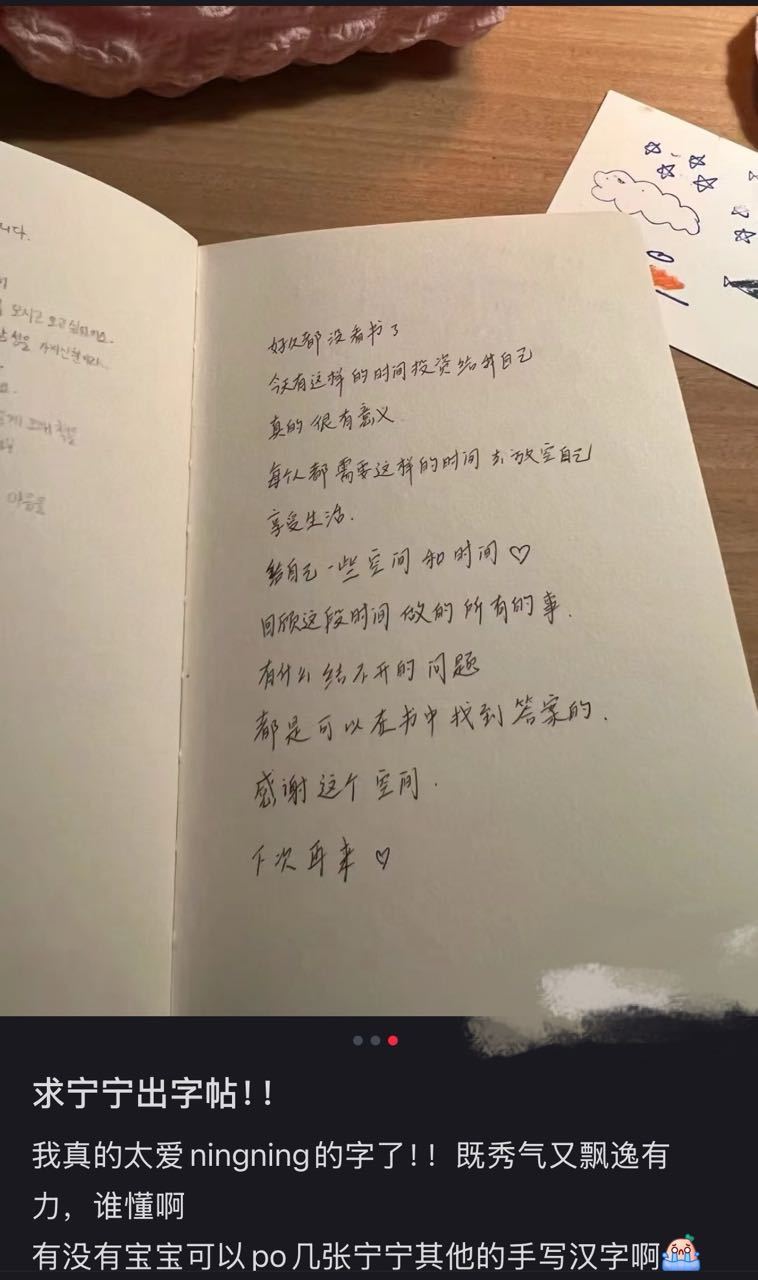 니다.
모시고 오고 싶
好久都没看书了
今天有这样的时间投资给我自己
真的很有意义
每个人都需要这样的时间去放空自己
享受生活.
给自己一些空间和时间♡
回顾这段时间做的所有的事.
有什么结不开的问题
都是可以在书中找到答案的.
感谢这个空间.
下次再来♡
求宁宁出字帖！！
我真的太爱ningning的字了！！既秀气又飘逸有
力，谁懂啊
有没有宝宝可以po几张宁宁其他的手写汉字啊😭